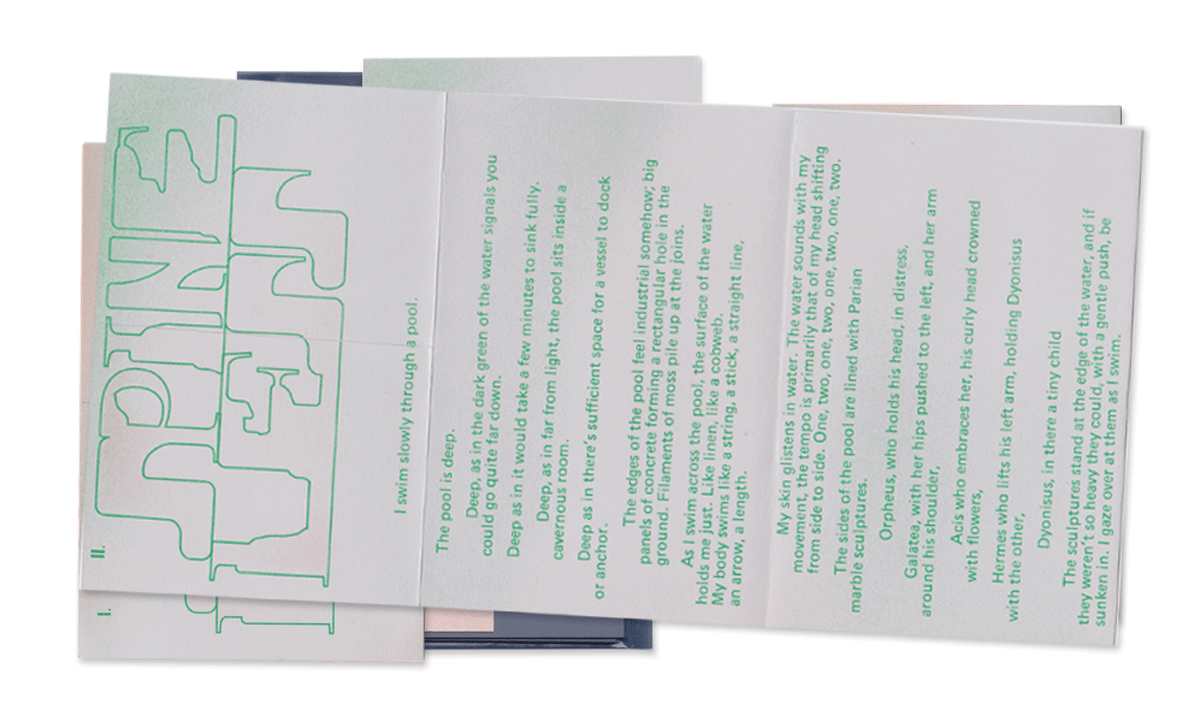 I.
II.
I swim slowly through a pool.
The pool is deep.
Deep, as in the dark green of the water signals you
could go quite far down.
Deep as in it would take a few minutes to sink fully.
Deep, as in far from light, the pool sits inside a
cavernous room.
Deep as in there's sufficient space for a vessel to dock
or anchor.
The edges of the pool feel industrial somehow; big
panels of concrete forming a rectangular hole in the
ground. Filaments of moss pile up at the joins.
As I swim across the pool, the surface of the water
holds me just. Like linen, like a cobweb.
My body swims like a string, a stick, a straight line,
an arrow, a length.
My skin glistens in water. The water sounds with my
movement, the tempo is primarily that of my head shifting
from side to side. One, two, one, two, one, two, one, two.
The sides of the pool are lined with Parian
marble sculptures.
Orpheus, who holds his head, in distress,
Galatea, with her hips pushed to the left, and her arm
around his shoulder,
Acis who embraces her, his curly head crowned
with flowers,
Hermes who lifts his left arm, holding Dyonisus
with the other,
Dyonisus, in there a tiny child
The sculptures stand at the edge of the water, and if
they weren't so heavy they could, with a gentle push, be
sunken in. I gaze over at them as I swim.